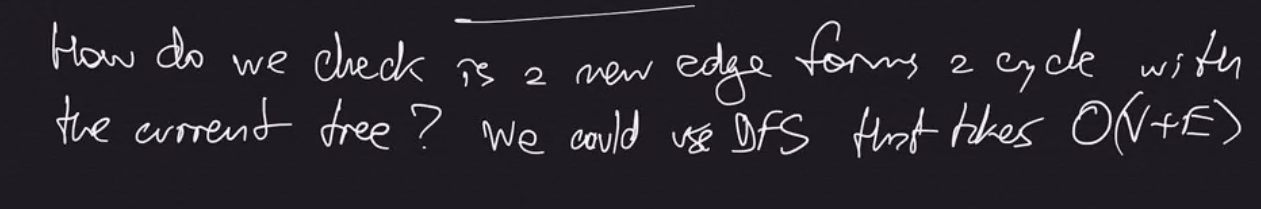 How do we check is a new edge forms a cycle with
the current tree? We could use DFS that takes O(V+E)